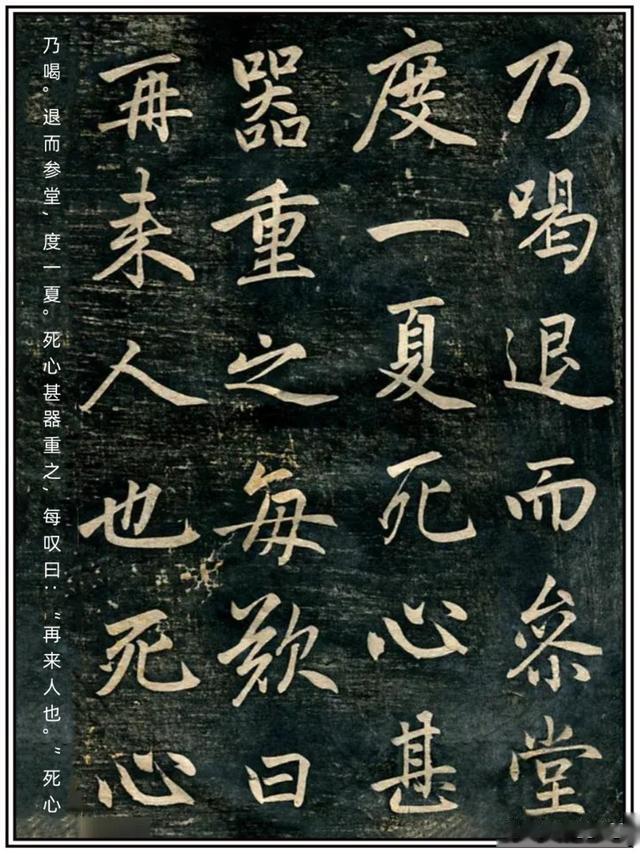 乃喝退而叅堂
度一夏死心甚
器重之每歎曰
再来人也死心
乃喝。退而参堂，度一夏。死心甚器重之，每叹曰：“再来人也。”死心